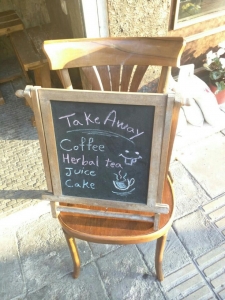 Take Away
Coffee
Herbal tea
Juice
Cake